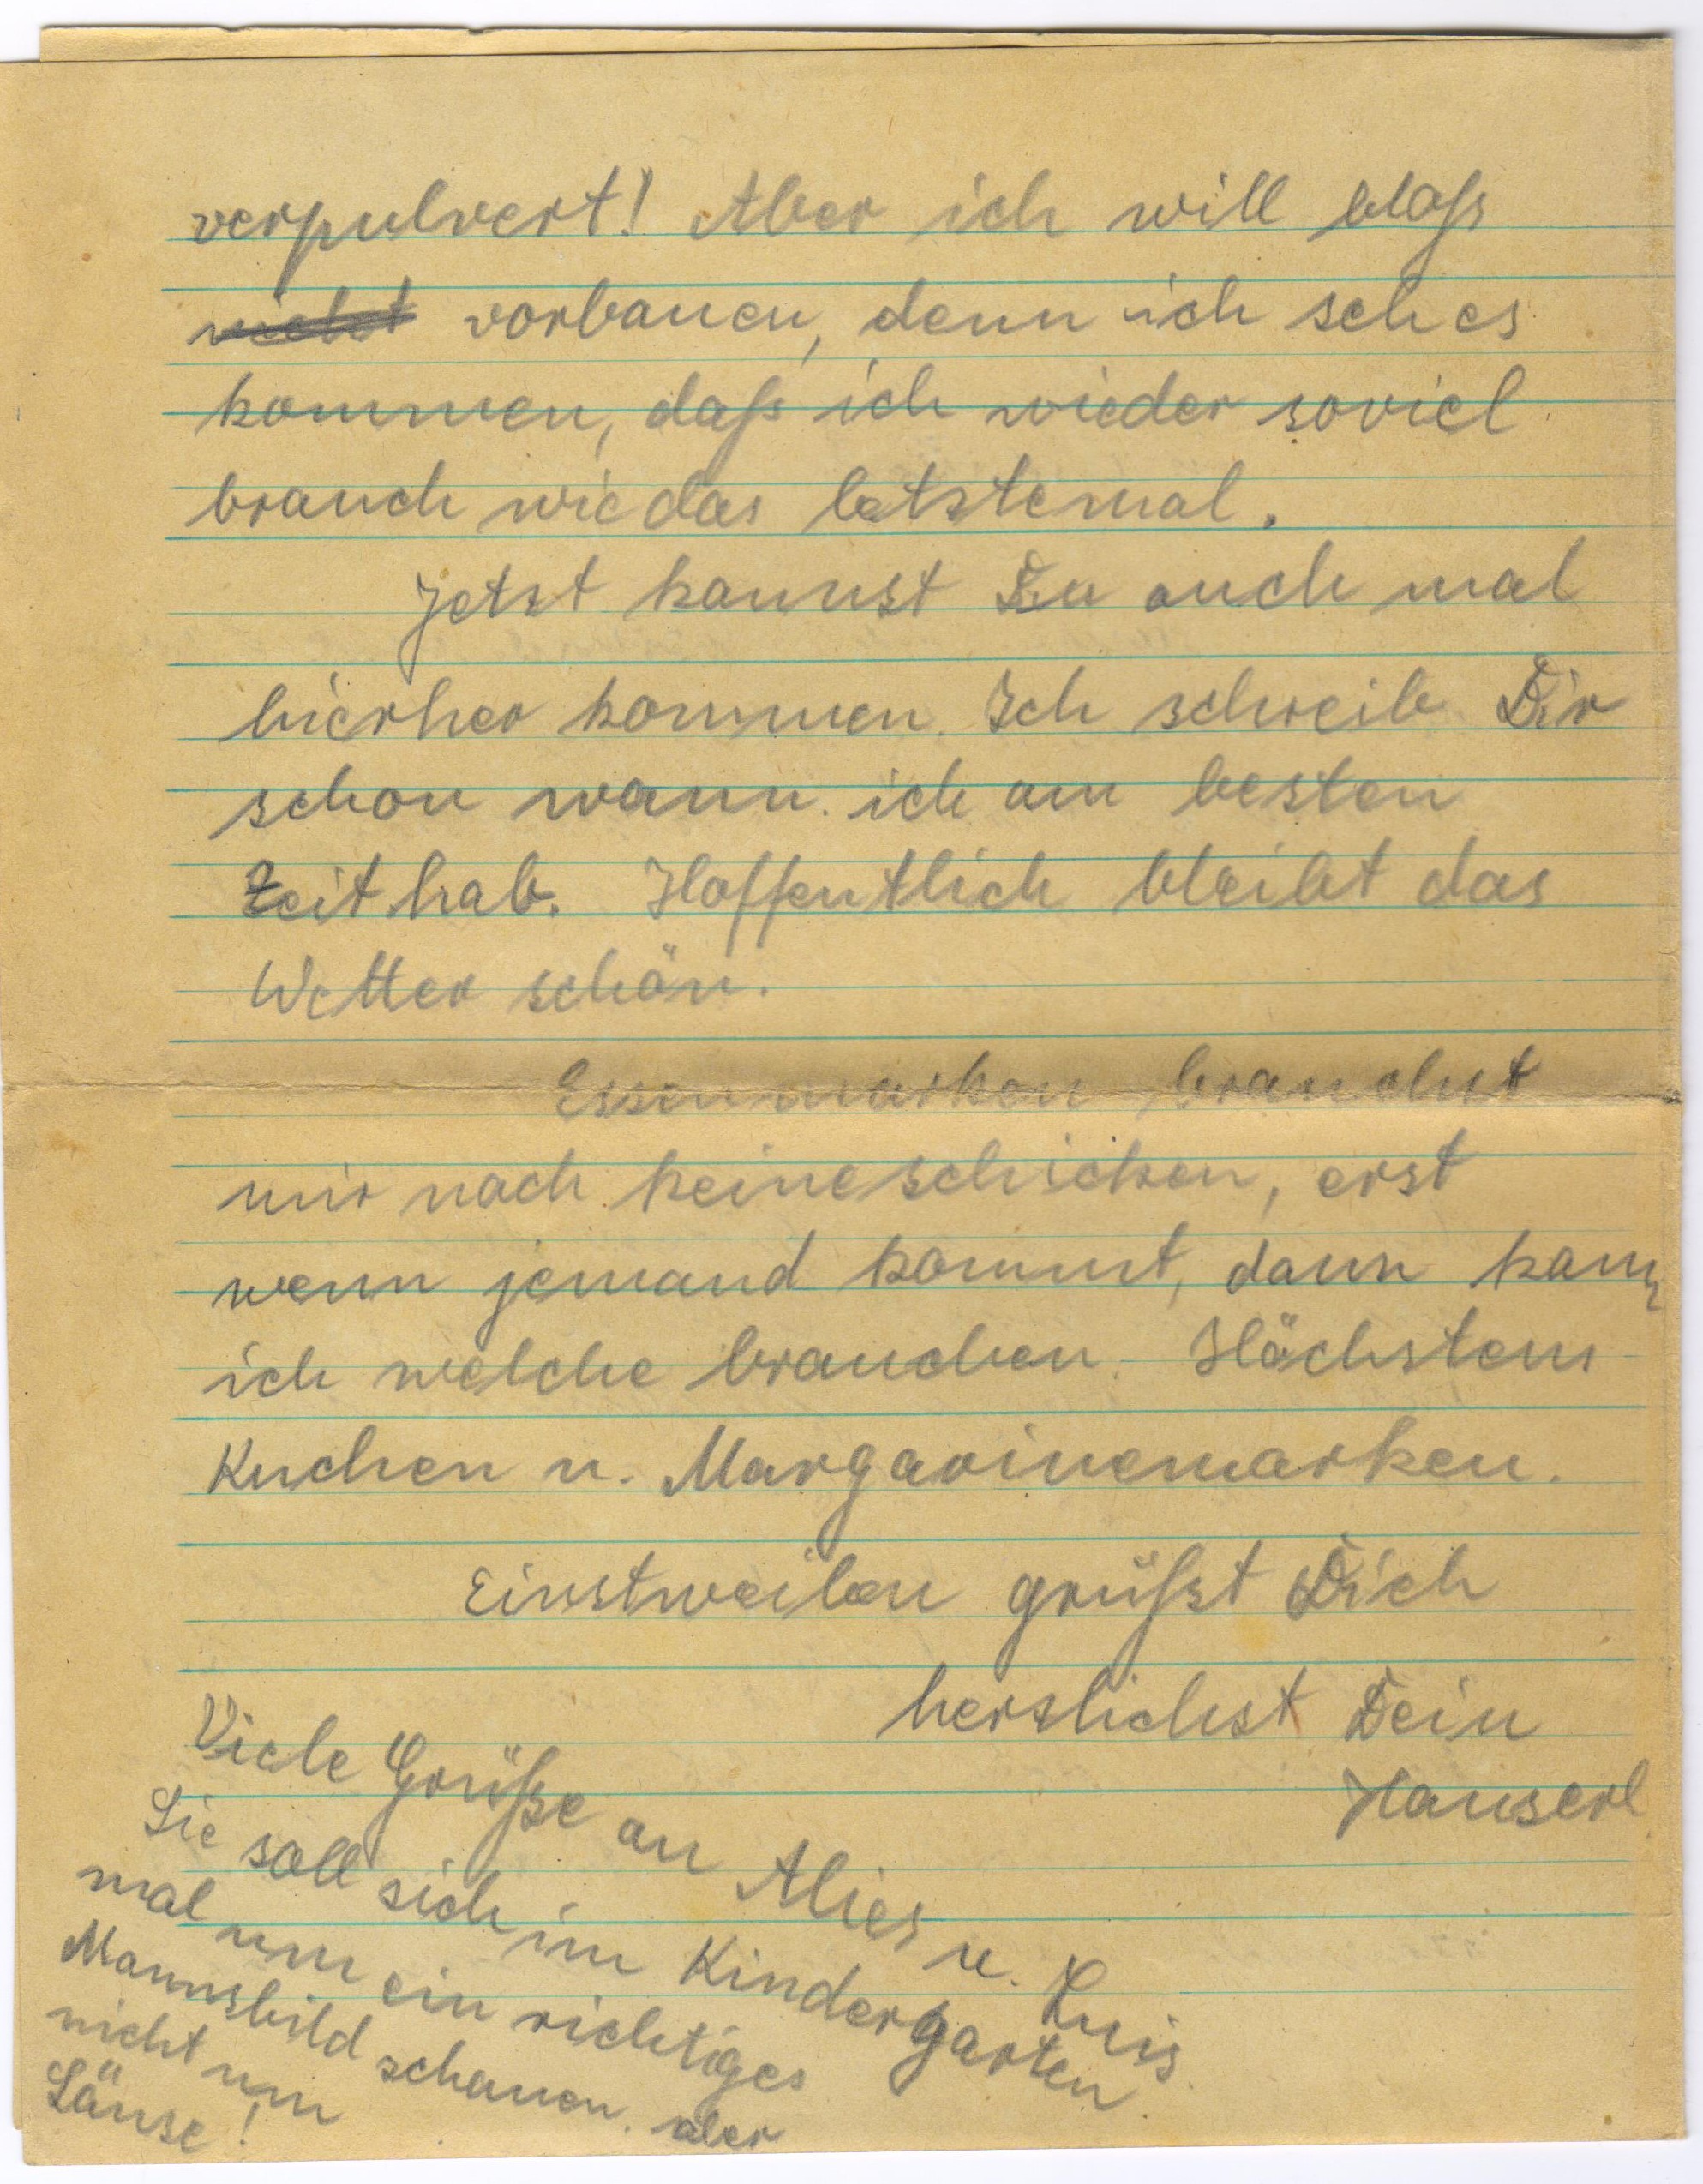 verpulvert! Aber ich will bloß
nicht vorbauen, denn ich seh es
kommen, daß ich wieder soviel
brauch wie das letztemal.
Jetzt kannst Du auch mal
hierher kommen. Ich schreib Dir
schon wann ich am besten
Zeit hab. Hoffentlich bleibt das
Wetter schön.
Essenmarken brauchst
mir noch keine schicken, erst
wenn jemand kommt, dann kann
ich welche brauchen. Höchstens
Kuchen u. Margarinemarken.
Einstweilen grüßt Dich
herzlichst Dein
Hanserl
Viele Grüße an Alies u. Luis
Sie soll sich im Kindergarten
mal um ein richtiges
Mannsbild schauen. aber
nicht um
Läuse!